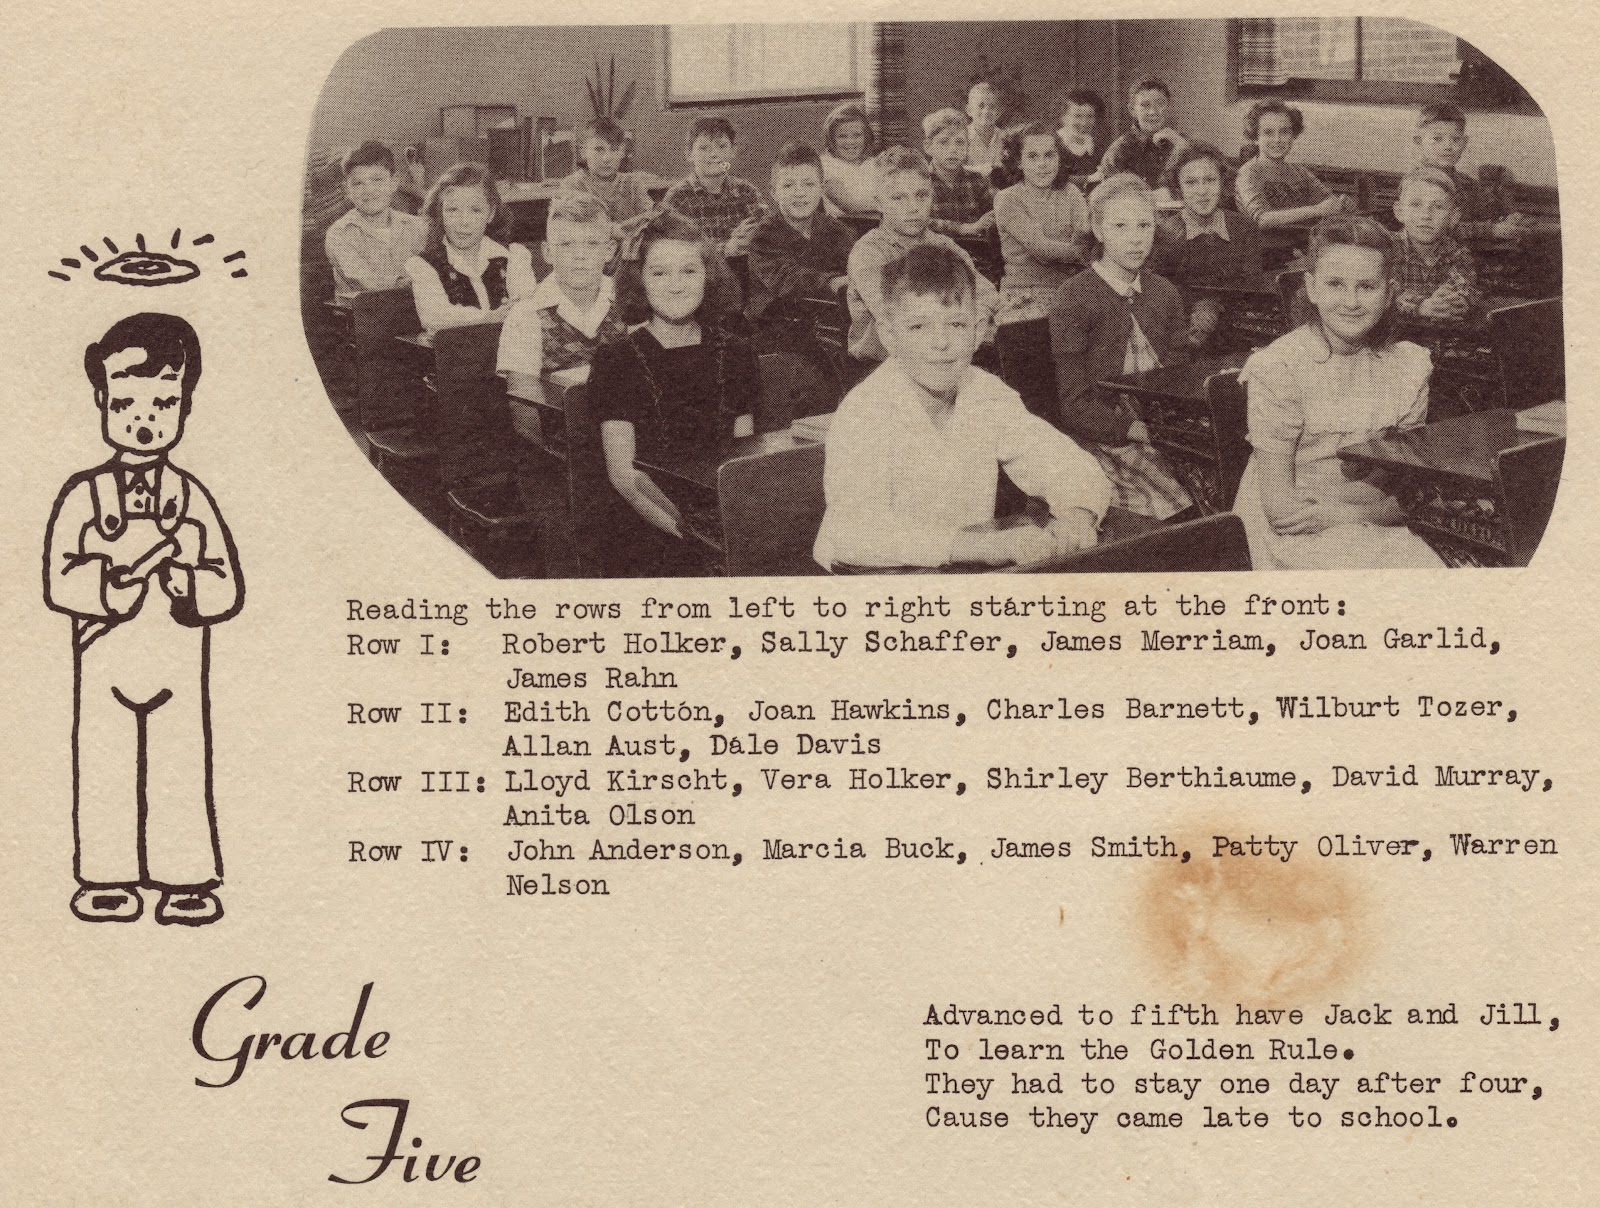 Reading the rows from left to right starting at the front:
Row I: Robert Holker, Sally Schaffer, James Merriam, Joan Garlid,
James Rahn
Row II: Edith Cotton, Joan Hawkins, Charles Barnett, Wilburt Tozer,
Allan Aust, Dale Davis
Row III: Lloyd Kirscht, Vera Holker, Shirley Berthiaume, David Murray,
Anita Olson
Row IV: John Anderson, Marcia Buck, James Smith, Patty Oliver, Warren
Nelson
Grade
Five
Advanced to fifth have Jack and Jill,
To learn the Golden Rule.
They had to stay one day after four,
Cause they came late to school.